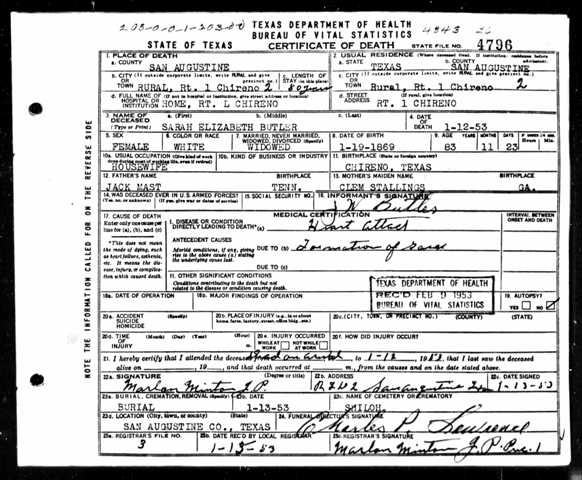 TEXAS DEPARTMENT OF HEALTH
BUREAU OF VITAL STATISTICS
STATE OF TEXAS CERTIFICATE OF DEATH STATE FILE NO. 4796
1. PLACE OF DEATH 2. USUAL RESIDENCE
a. COUNTY SAN AUGUSTINE a. STATE TEXAS b. COUNTY SAN AUGUSTINE
b. CITY OR TOWN RURAL, Rt. 1 Chireno 2 c. LENGTH OF STAY 80 years c. CITY OR TOWN Rural, Rt. 1 Chireno 2
d. FULL NAME OF HOSPITAL OR INSTITUTION HOME, RT. 1 CHIRENO d. STREET ADDRESS RT. 1 CHIRENO
3. NAME OF DECEASED (Type or Print) a. (First) b. (Middle) c. (Last) 4. DATE OF DEATH
SARAH ELIZABETH BUTLER 1-12-53
5. SEX 6. COLOR OR RACE 7. MARRIED, NEVER MARRIED, WIDOWED, DIVORCED (Specify) 8. DATE OF BIRTH 9. AGE YEARS MONTHS DAYS
FEMALE WHITE WIDOWED 1-19-1869 83 11 23
10a. USUAL OCCUPATION 10b. KIND OF BUSINESS OR INDUSTRY 11. BIRTHPLACE (State or foreign country)
HOUSEWIFE CHIRENO, TEXAS
12. FATHER'S NAME BIRTHPLACE 13. MOTHER'S MAIDEN NAME BIRTHPLACE
JACK MAST TENN. CLEM STALLINGS GA.
14. WAS DECEASED EVER IN U.S. ARMED FORCES? 15. SOCIAL SECURITY NO. 16. INFORMANT'S SIGNATURE
W Butler
17. CAUSE OF DEATH MEDICAL CERTIFICATION INTERVAL BETWEEN ONSET AND DEATH
Enter only one cause per line for (a), (b), and (c)
I. DISEASE OR CONDITION DIRECTLY LEADING TO DEATH* (a) Heart attack
*This does not mean the mode of dying, such as heart failure, asthenia, etc. It means the disease, injury, or complication which caused death.
ANTECEDENT CAUSES
Morbid conditions, if any, giving rise to the above cause (a) stating the underlying cause last.
DUE TO (b) Formation of
DUE TO (c)
II. OTHER SIGNIFICANT CONDITIONS
Conditions contributing to the death but not related to the disease or condition causing death.
TEXAS DEPARTMENT OF HEALTH
REC'D FEB 9 1953
BUREAU OF VITAL STATISTICS
18a. DATE OF OPERATION 18b. MAJOR FINDINGS OF OPERATION 19. AUTOPSY? YES NO
20a. ACCIDENT SUICIDE HOMICIDE (Specify) 20b. PLACE OF INJURY 20c. (CITY, TOWN, OR PRECINCT NO.) (COUNTY) (STATE)
20d. TIME OF INJURY (Month) (Day) (Year) (Hour) 20e. INJURY OCCURRED WHILE AT WORK NOT WHILE AT WORK 20f. HOW DID INJURY OCCUR?
21. I hereby certify that I attended the deceased Dead on arrival to 1-12 1953, that I last saw the deceased
alive on , 19 , and that death occurred at m., from the causes and on the date stated above.
22a. SIGNATURE (Degree or title) 22b. ADDRESS 22c. DATE SIGNED
Marlon Minton J.P. San Augustine 1-13-53
23a. BURIAL, CREMATION, REMOVAL (Specify) 23b. DATE 23c. NAME OF CEMETERY OR CREMATORY
BURIAL 1-13-53 SHILOH
23d. LOCATION (City, town, or county) (State) 24. FUNERAL DIRECTOR'S SIGNATURE
SAN AUGUSTINE CO., TEXAS Charles P. Lawrence
25a. REGISTRAR'S FILE NO. 25b. DATE REC'D BY LOCAL REGISTRAR 25c. REGISTRAR'S SIGNATURE
3 1-13-53 Marlon Minton J.P. Prec. 1
NOTE THE INFORMATION CALLED FOR ON THE REVERSE SIDE